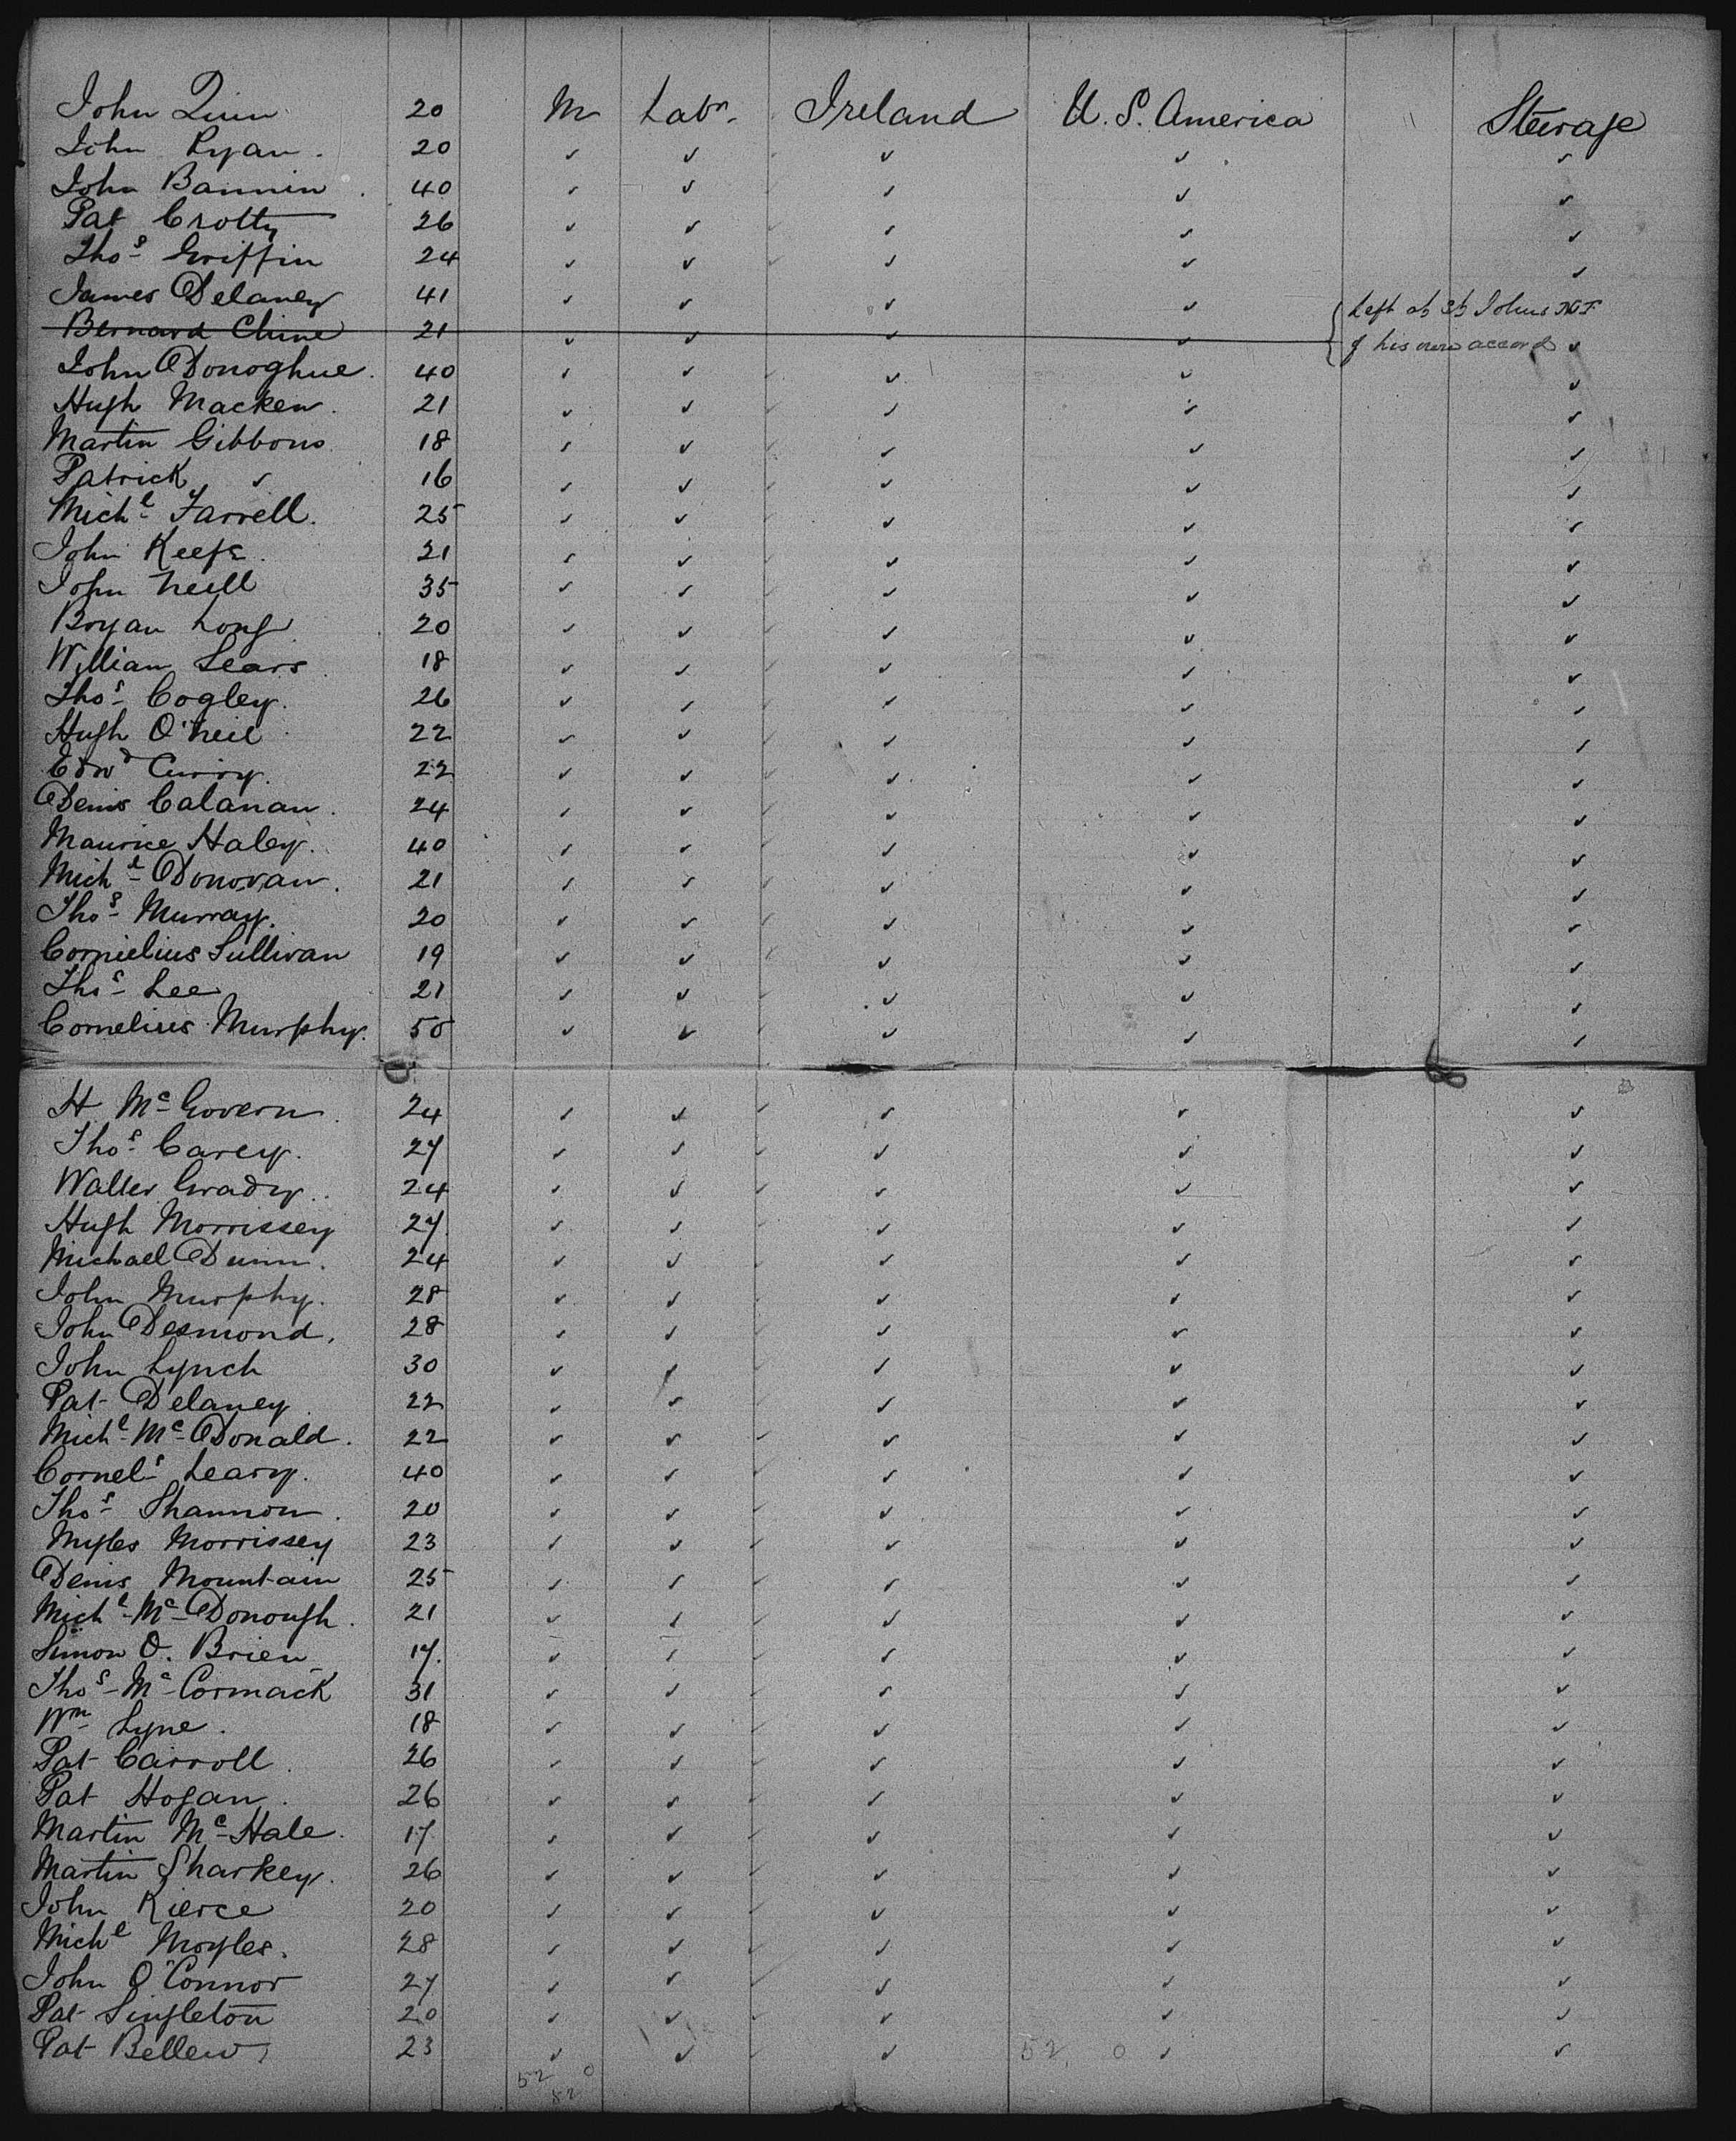 John Quin 20 M Labr. Ireland U. S. America " Steerage
John Ryan. 20 ✓ ✓ ✓ ✓ ✓
John Bannin 40 ✓ ✓ ✓ ✓ ✓
Pat Crotty 26 ✓ ✓ ✓ ✓ ✓
Thos Griffin 24 ✓ ✓ ✓ ✓ ✓
James Delaney 41 ✓ ✓ ✓ ✓ Left at St Johns NF
Bernard Cline 21 ✓ ✓ ✓ ✓ of his own accord ✓
John ODonoghue. 40 ✓ ✓ ✓ ✓ ✓
Hugh Macken. 21 ✓ ✓ ✓ ✓ ✓
Martin Gibbons 18 ✓ ✓ ✓ ✓ ✓
Patrick ✓ 16 ✓ ✓ ✓ ✓ ✓
Michl Farrell. 25 ✓ ✓ ✓ ✓ ✓
John Keefe. 21 ✓ ✓ ✓ ✓ ✓
John Neill 35 ✓ ✓ ✓ ✓ ✓
Bryan Long 20 ✓ ✓ ✓ ✓ ✓
William Sears 18 ✓ ✓ ✓ ✓ ✓
Thos Cogley. 26 ✓ ✓ ✓ ✓ ✓
Hugh O'Neil 22 ✓ ✓ ✓ ✓ ✓
Edwd Curry. 22 ✓ ✓ ✓ ✓ ✓
Denis Calanan. 24 ✓ ✓ ✓ ✓ ✓
Maurice Haley. 40 ✓ ✓ ✓ ✓ ✓
Michl Donovan. 21 ✓ ✓ ✓ ✓ ✓
Thos Murray. 20 ✓ ✓ ✓ ✓ ✓
Cornielius Sullivan 19 ✓ ✓ ✓ ✓ ✓
Thos Lee 21 ✓ ✓ ✓ ✓ ✓
Cornelius Murphy. 50 ✓ ✓ ✓ ✓ ✓
H McGovern. 24 ✓ ✓ ✓ ✓ ✓
Thos Carey. 27 ✓ ✓ ✓ ✓ ✓
Walter Grady. 24 ✓ ✓ ✓ ✓ ✓
Hugh Morrissey 27 ✓ ✓ ✓ ✓ ✓
Michael Dunn. 24 ✓ ✓ ✓ ✓ ✓
John Murphy. 28 ✓ ✓ ✓ ✓ ✓
John Desmond. 28 ✓ ✓ ✓ ✓ ✓
John Lynch 30 ✓ ✓ ✓ ✓ ✓
Pat Delaney 22 ✓ ✓ ✓ ✓ ✓
Michl McDonald. 22 ✓ ✓ ✓ ✓ ✓
Cornels Leary. 40 ✓ ✓ ✓ ✓ ✓
Thos Shannon. 20 ✓ ✓ ✓ ✓ ✓
Myles Morrissey 23 ✓ ✓ ✓ ✓ ✓
Denis Mountain 25 ✓ ✓ ✓ ✓ ✓
Michl McDonough. 21 ✓ ✓ ✓ ✓ ✓
Simon O. Brien 17. ✓ ✓ ✓ ✓ ✓
Thos McCormack 31 ✓ ✓ ✓ ✓ ✓
Wm Lyne. 18 ✓ ✓ ✓ ✓ ✓
Pat Carroll. 26 ✓ ✓ ✓ ✓ ✓
Pat Hogan. 26 ✓ ✓ ✓ ✓ ✓
Martin McHale. 17 ✓ ✓ ✓ ✓ ✓
Martin Sharkey. 26 ✓ ✓ ✓ ✓ ✓
John Kierce 20 ✓ ✓ ✓ ✓ ✓
Michl Moyles. 28 ✓ ✓ ✓ ✓ ✓
John O'Connor 27 ✓ ✓ ✓ ✓ ✓
Pat Singleton 20 ✓ ✓ ✓ ✓ ✓
Pat Bellew 23 ✓ ✓ ✓ 52 0 ✓ ✓
52 0
52